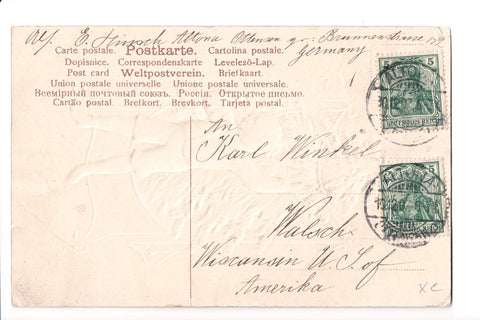 Abs. E. Hinsch Altona Ottensen gr. Brunnenstrasse
Germany
Carte postale. Postkarte. Cartolina postale.
Dopisnice. Correspondenzkarte. Levelező-Lap.
Post card Weltpostverein. Briefkaart.
Union postale universelle. Unione postale universale.
Всемірный почтовый союзъ. Россія. Открытое письмо.
Cartão postal. Brefkort. Brevkort. Tarjeta postal.
An
Karl Winkel
Walsch
Wisconsin U.S. of
Amerika
5
ALTONA
DEUTSCHES REICH
5
ALTONA
XC